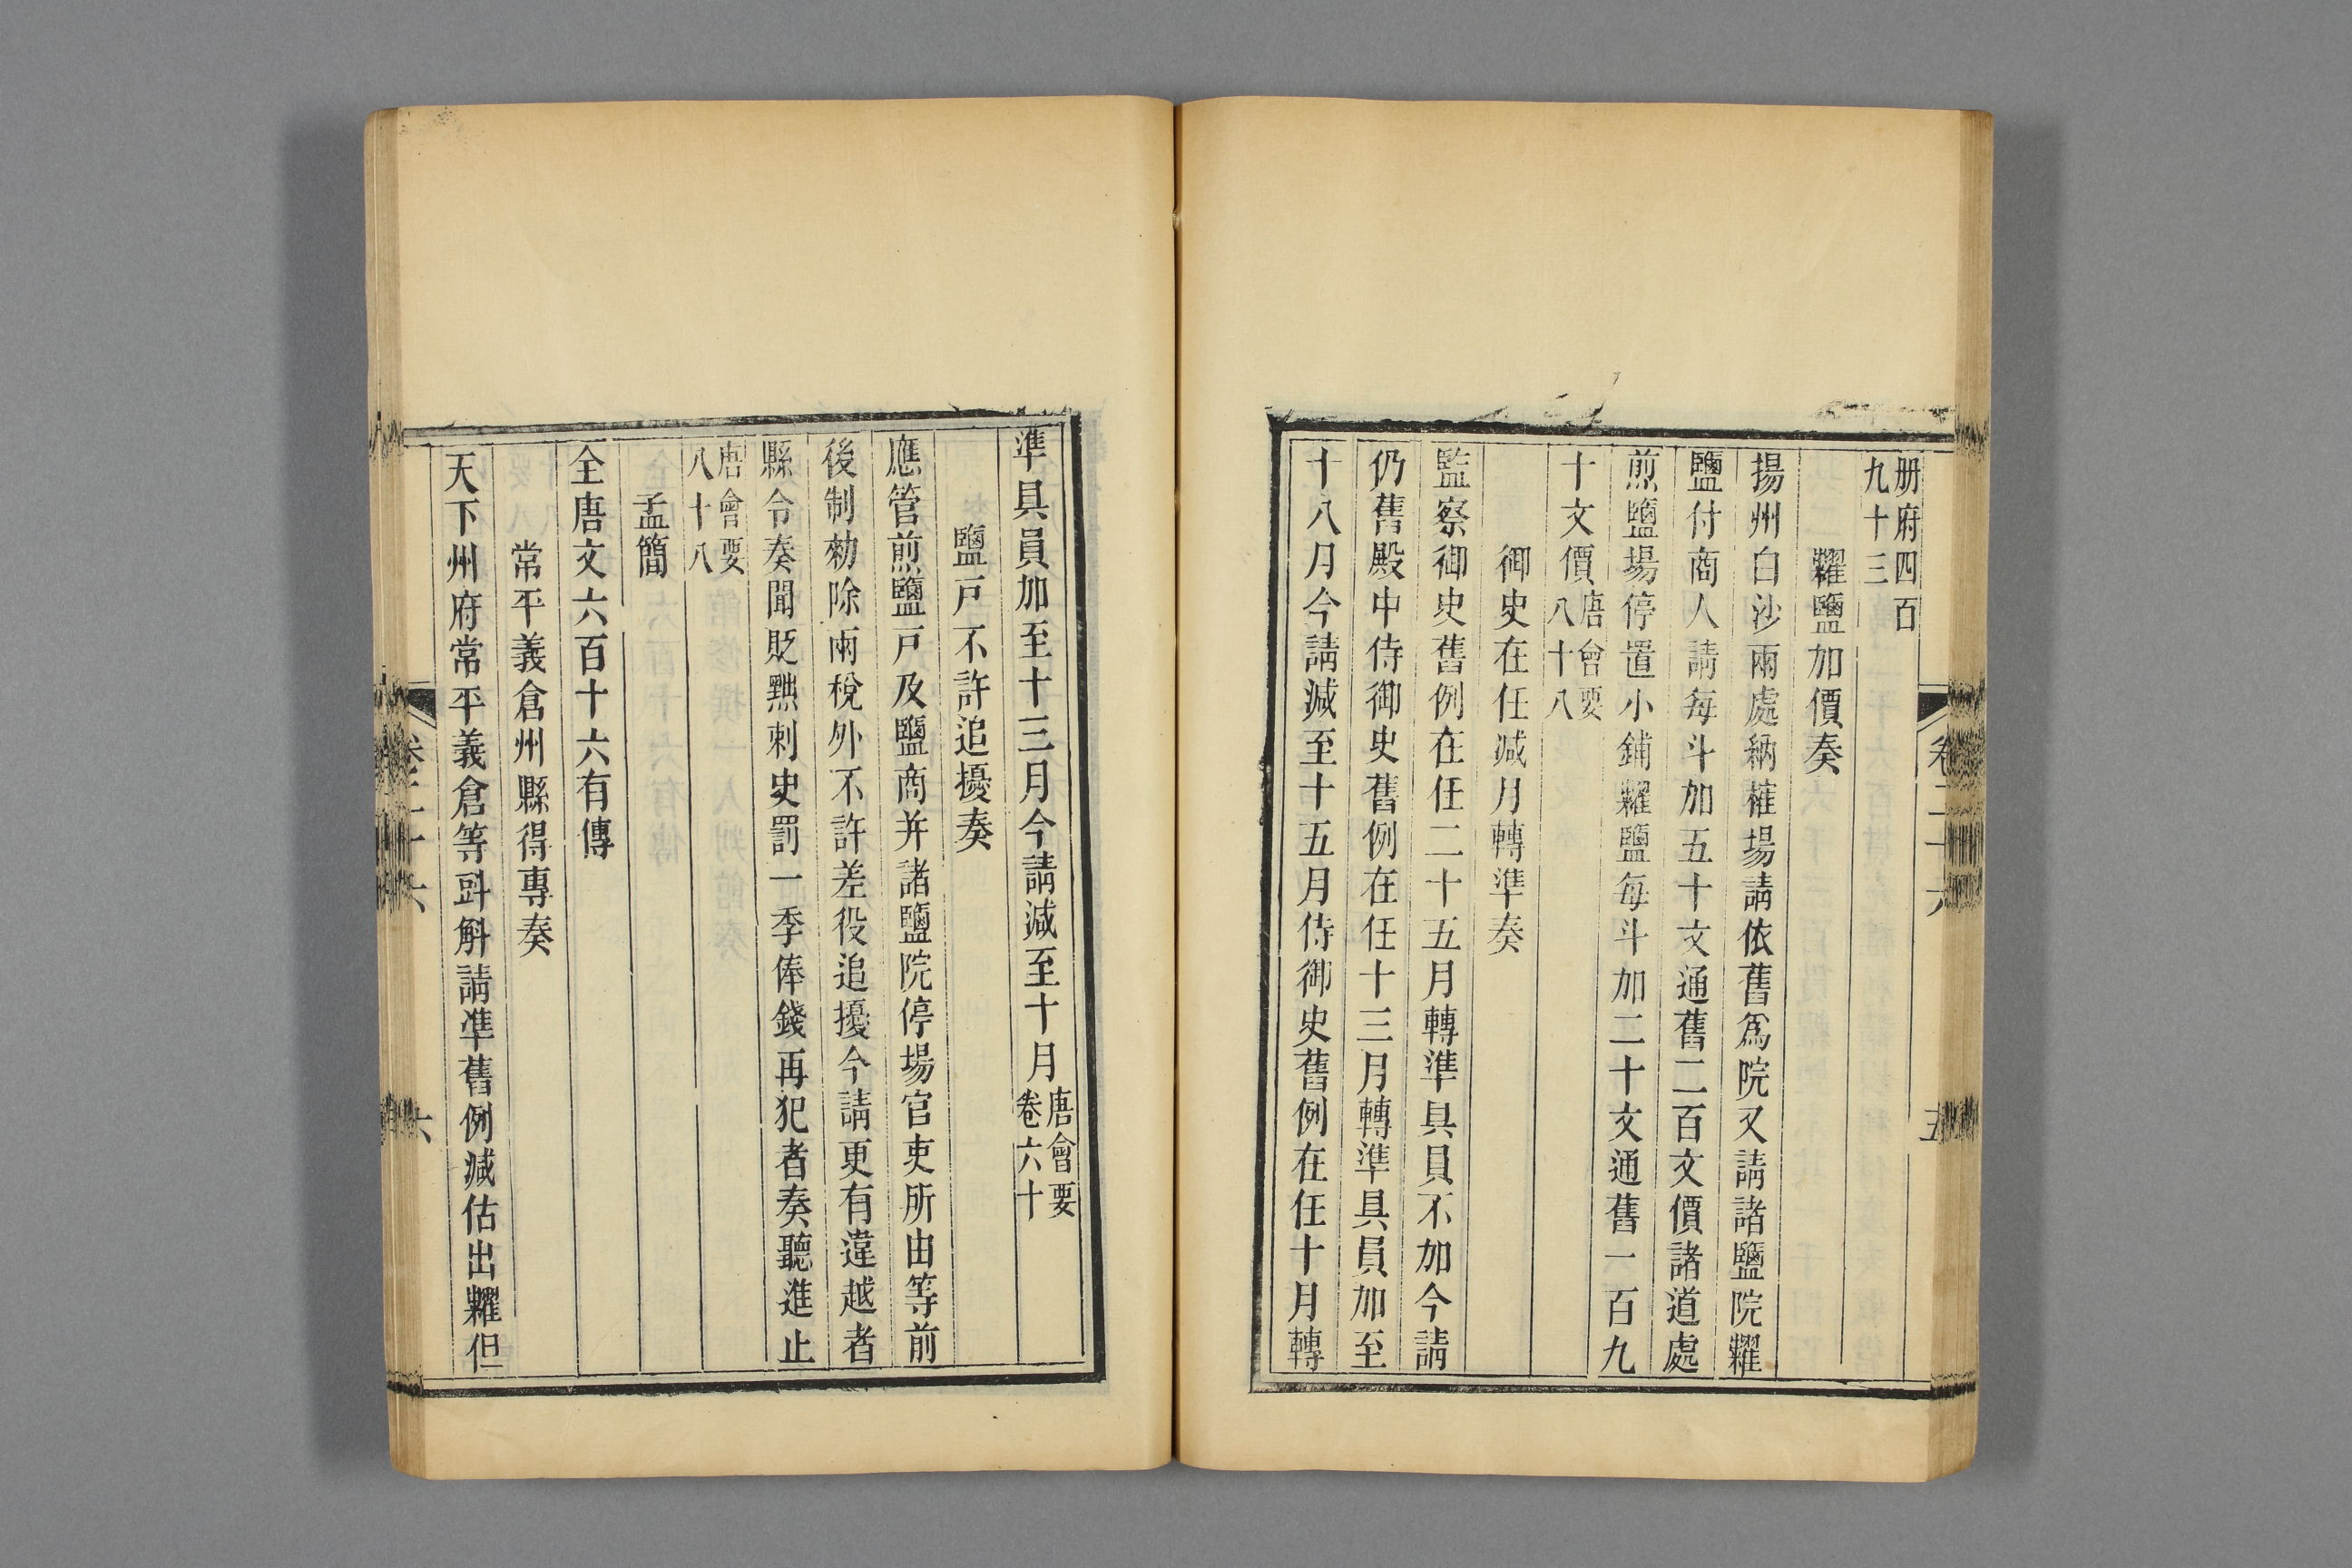 册府四百
九十三
糶鹽加價奏
揚州白沙兩處納榷場請依舊爲院又請諸鹽院糶
鹽付商人請每斗加五十文通舊二百文價諸道處
煎鹽場停置小鋪糶鹽每斗加二十文通舊一百九
十文價唐會要
八十八
御史在任減月轉準奏
監察御史舊例在任二十五月轉準具員不加今請
仍舊殿中侍御史舊例在任十三月轉準具員加至
十八月今請減至十五月侍御史舊例在任十月轉
準具員加至十三月今請減至十月唐會要
卷六十
鹽戶不許追擾奏
應管煎鹽戶及鹽商并諸鹽院停場官吏所由等前
後制勑除兩稅外不許差役追擾今請更有違越者
縣令奏聞貶黜刺史罰一季俸錢再犯者奏聽進止
唐會要
八十八
孟簡
全唐文六百十六有傳
常平義倉州縣得專奏
天下州府常平義倉等㪷斛請準舊例減估出糶但
卷二十六
五
六